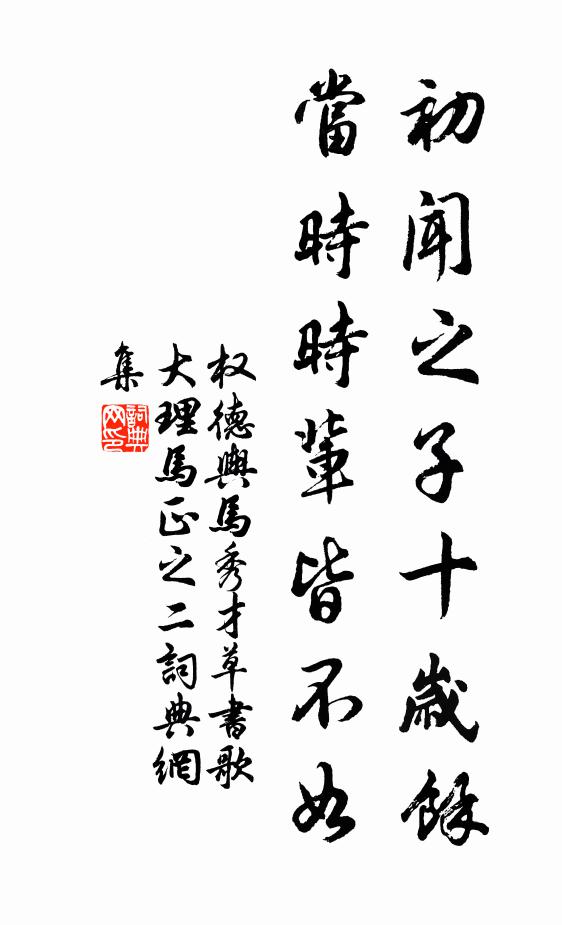 初聞之子十歲餘
當時時輩皆不如
权德輿馬秀才草書歌
大理馬正之二詞典網
集
詞典
网印